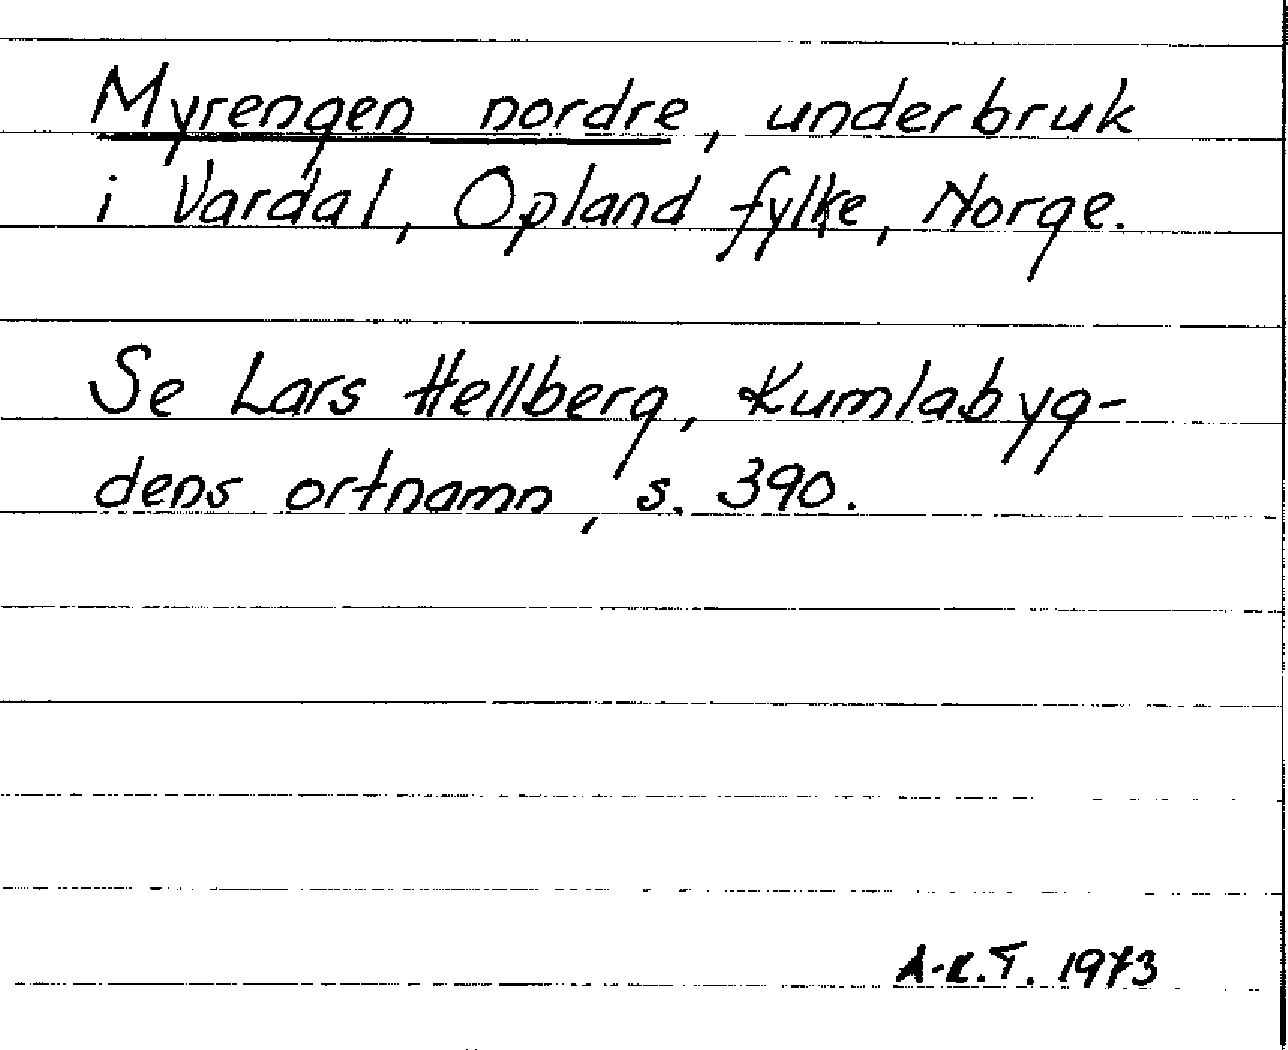 Myrengen nordre, underbruk
i Vardal, Opland fylke, Norge.
Se Lars Hellberg, Kumlabyg-
dens ortnamn, s. 390.
A-K.T. 1973